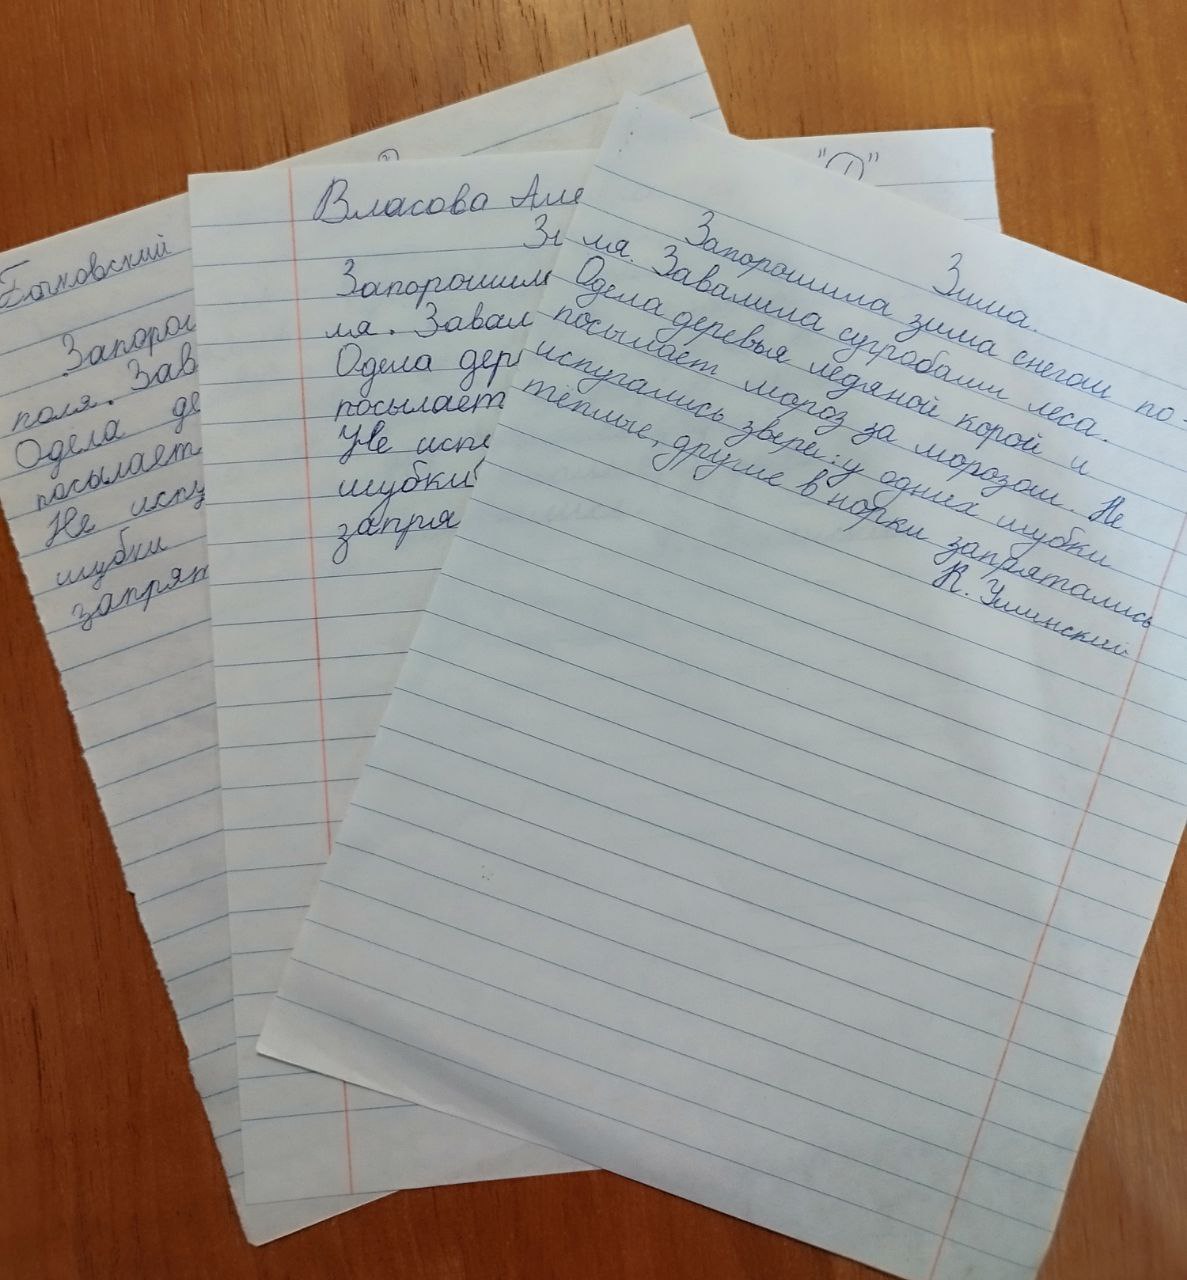 Бочковский
Запорош
поля. Зав
Одела де
посылает
Не испу
шубки
запрят
Власова Але
Зи
Запорошила
ля. Завал
Одела дер
посылает
Не испу
шубки
запря
"1"
Зима.
Запорошила зима снегом по-
ля. Завалила сугробами леса.
Одела деревья ледяной корой и
посылает мороз за морозом. Не
испугались звери: у одних шубки
тёплые, другие в норки запрятались
К. Ушинский